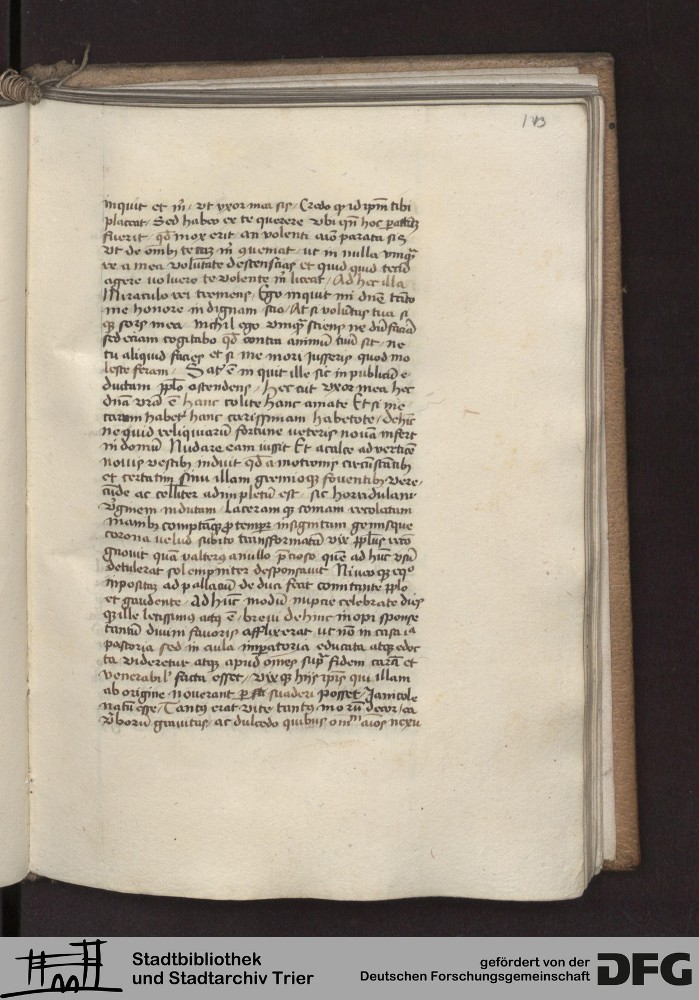 143
inquit et m̄ / vt vxor mea sis / Credo qꝫ id ip̄m tibi
placeat / Sed habeo ex te querere vbi qn̄ hoc
fuerit / qd̄ mox erit an volenti aīo parata sis
vt de om̄ibꝫ tecū m̄ ꝯueniat / ut in nulla vmqꝫ
re a mea volūtate descenscias et quid quid tecū
agere voluero te volente m̄ liceat / Ad hec illa
Miraculo rei tremens / Ego inquit mi dn̄e tāto
me honore in dignam scio / At si volūtas tua si
qꝫ sors mea Nichil ego vmqꝫ sciens ne dū faciā
sed eciam cogitabo qd̄ contra animū tuū sit / ne
tu aliquid facies et si me mori iusseris quod mo
leste feram / Sat̄ ē in quit ille sic in publicū e
ductam pp̄lo ostendens / hec ait vxor mea hec
dn̄a vr̄a ē hanc colite hanc amate Et si me
carum habet̄ hanc carissimam habetote / dehīc
ne quid reliquiarū fortune veteris nouā infert̄
in domū Nudare eam iussit Et a calce ad verticē
nouis vestibꝫ induit qd̄ a motronis circūstātibꝫ
et certatim sinu illam gremioqꝫ fouentibꝫ vere
cūde ac cel̄liter adimpletū est / sic horridulam
v̄ginem indutam / laceram qꝫ comam recolatam
manibꝫ comptāqꝫ ꝓ tempꝛ insignitam gemisque
corona velud subito transformatā vix pp̄lus reco
gnouit quā valterus anullo p̄cioso quē ad hūc vsū
detulerat solempniter desponsauit Niueo qꝫ eqo
inpositā ad pallaciū deduci fecit comitante pp̄lo
et gaudente / Ad hūc modū nupcie celebrate dies
qꝫ ille letissimus actꝫ ē / breui dehinc inopi sponse
tantū diuini fauoris affluxerat ut nō in casa ia
pastoria sed in aula imp̄atoria educata atqꝫ edoc
ta videretur atqꝫ apud om̄es sup̄ fidem cara et
venerabil' facta esset / vix qꝫ hijs ip̄is qui illam
ab origine nouerant suaderi posset / Janicole
natā esse / Tantꝰ erat vite tantꝰ morū decor / ea
v̄borū grauitas / ac dulcedo quibus om̄iū aīos nexu
Stadtbibliothek
und Stadtarchiv Trier
gefördert von der
Deutschen Forschungsgemeinschaft
DFG